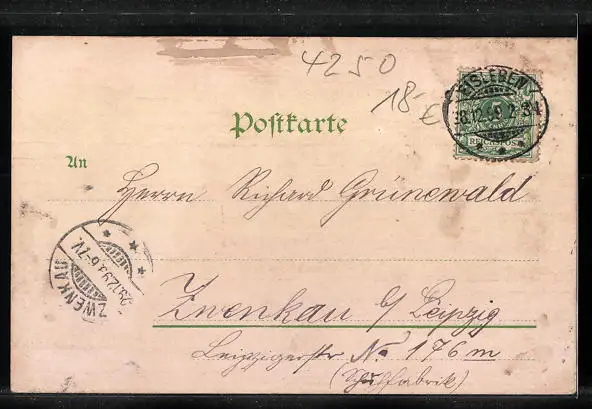 4250
18.-€
EISLEBEN
5
REICHSPOST
Postkarte
An
Herrn Richard Grünewald
ZWENKAU
Zwenkau b/ Leipzig
Leipzigerstr No 176 m
(Schuhfabrik)